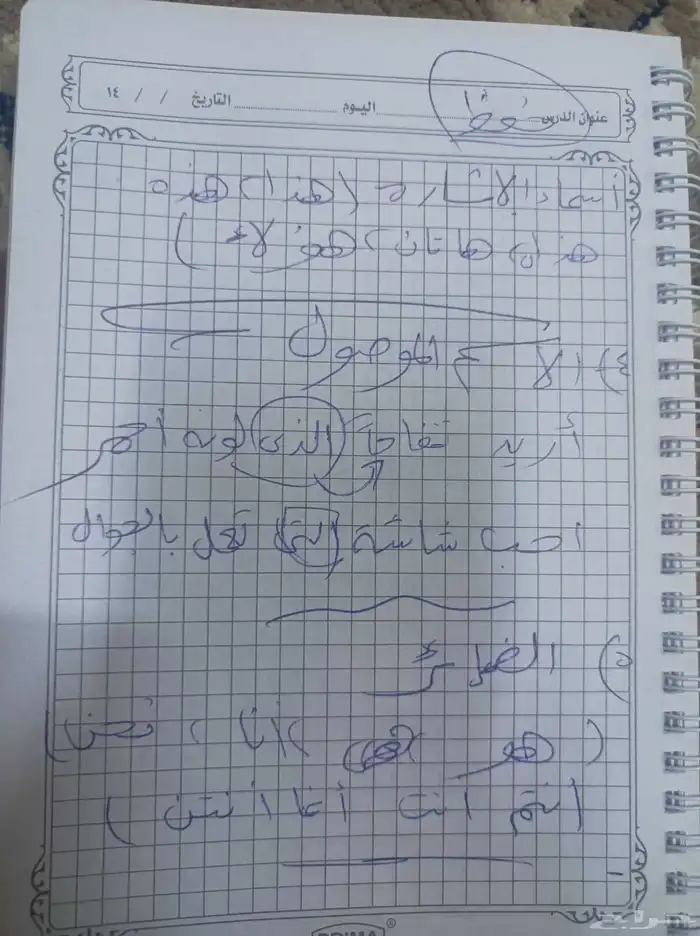 عنوان الدرس اليوم التاريخ / / ١٤
أسماء الإشارة (هذا، هذه
هذان هاتان، هؤلاء)
٤) الاسم الموصول
أريد تفاحاً الذي لونه أحمر
احب شاشة التي تعمل بالجوال
٥) الضمائر
(هو هي، نحن
أنتم انت أنا أنتن)
PRIMA®